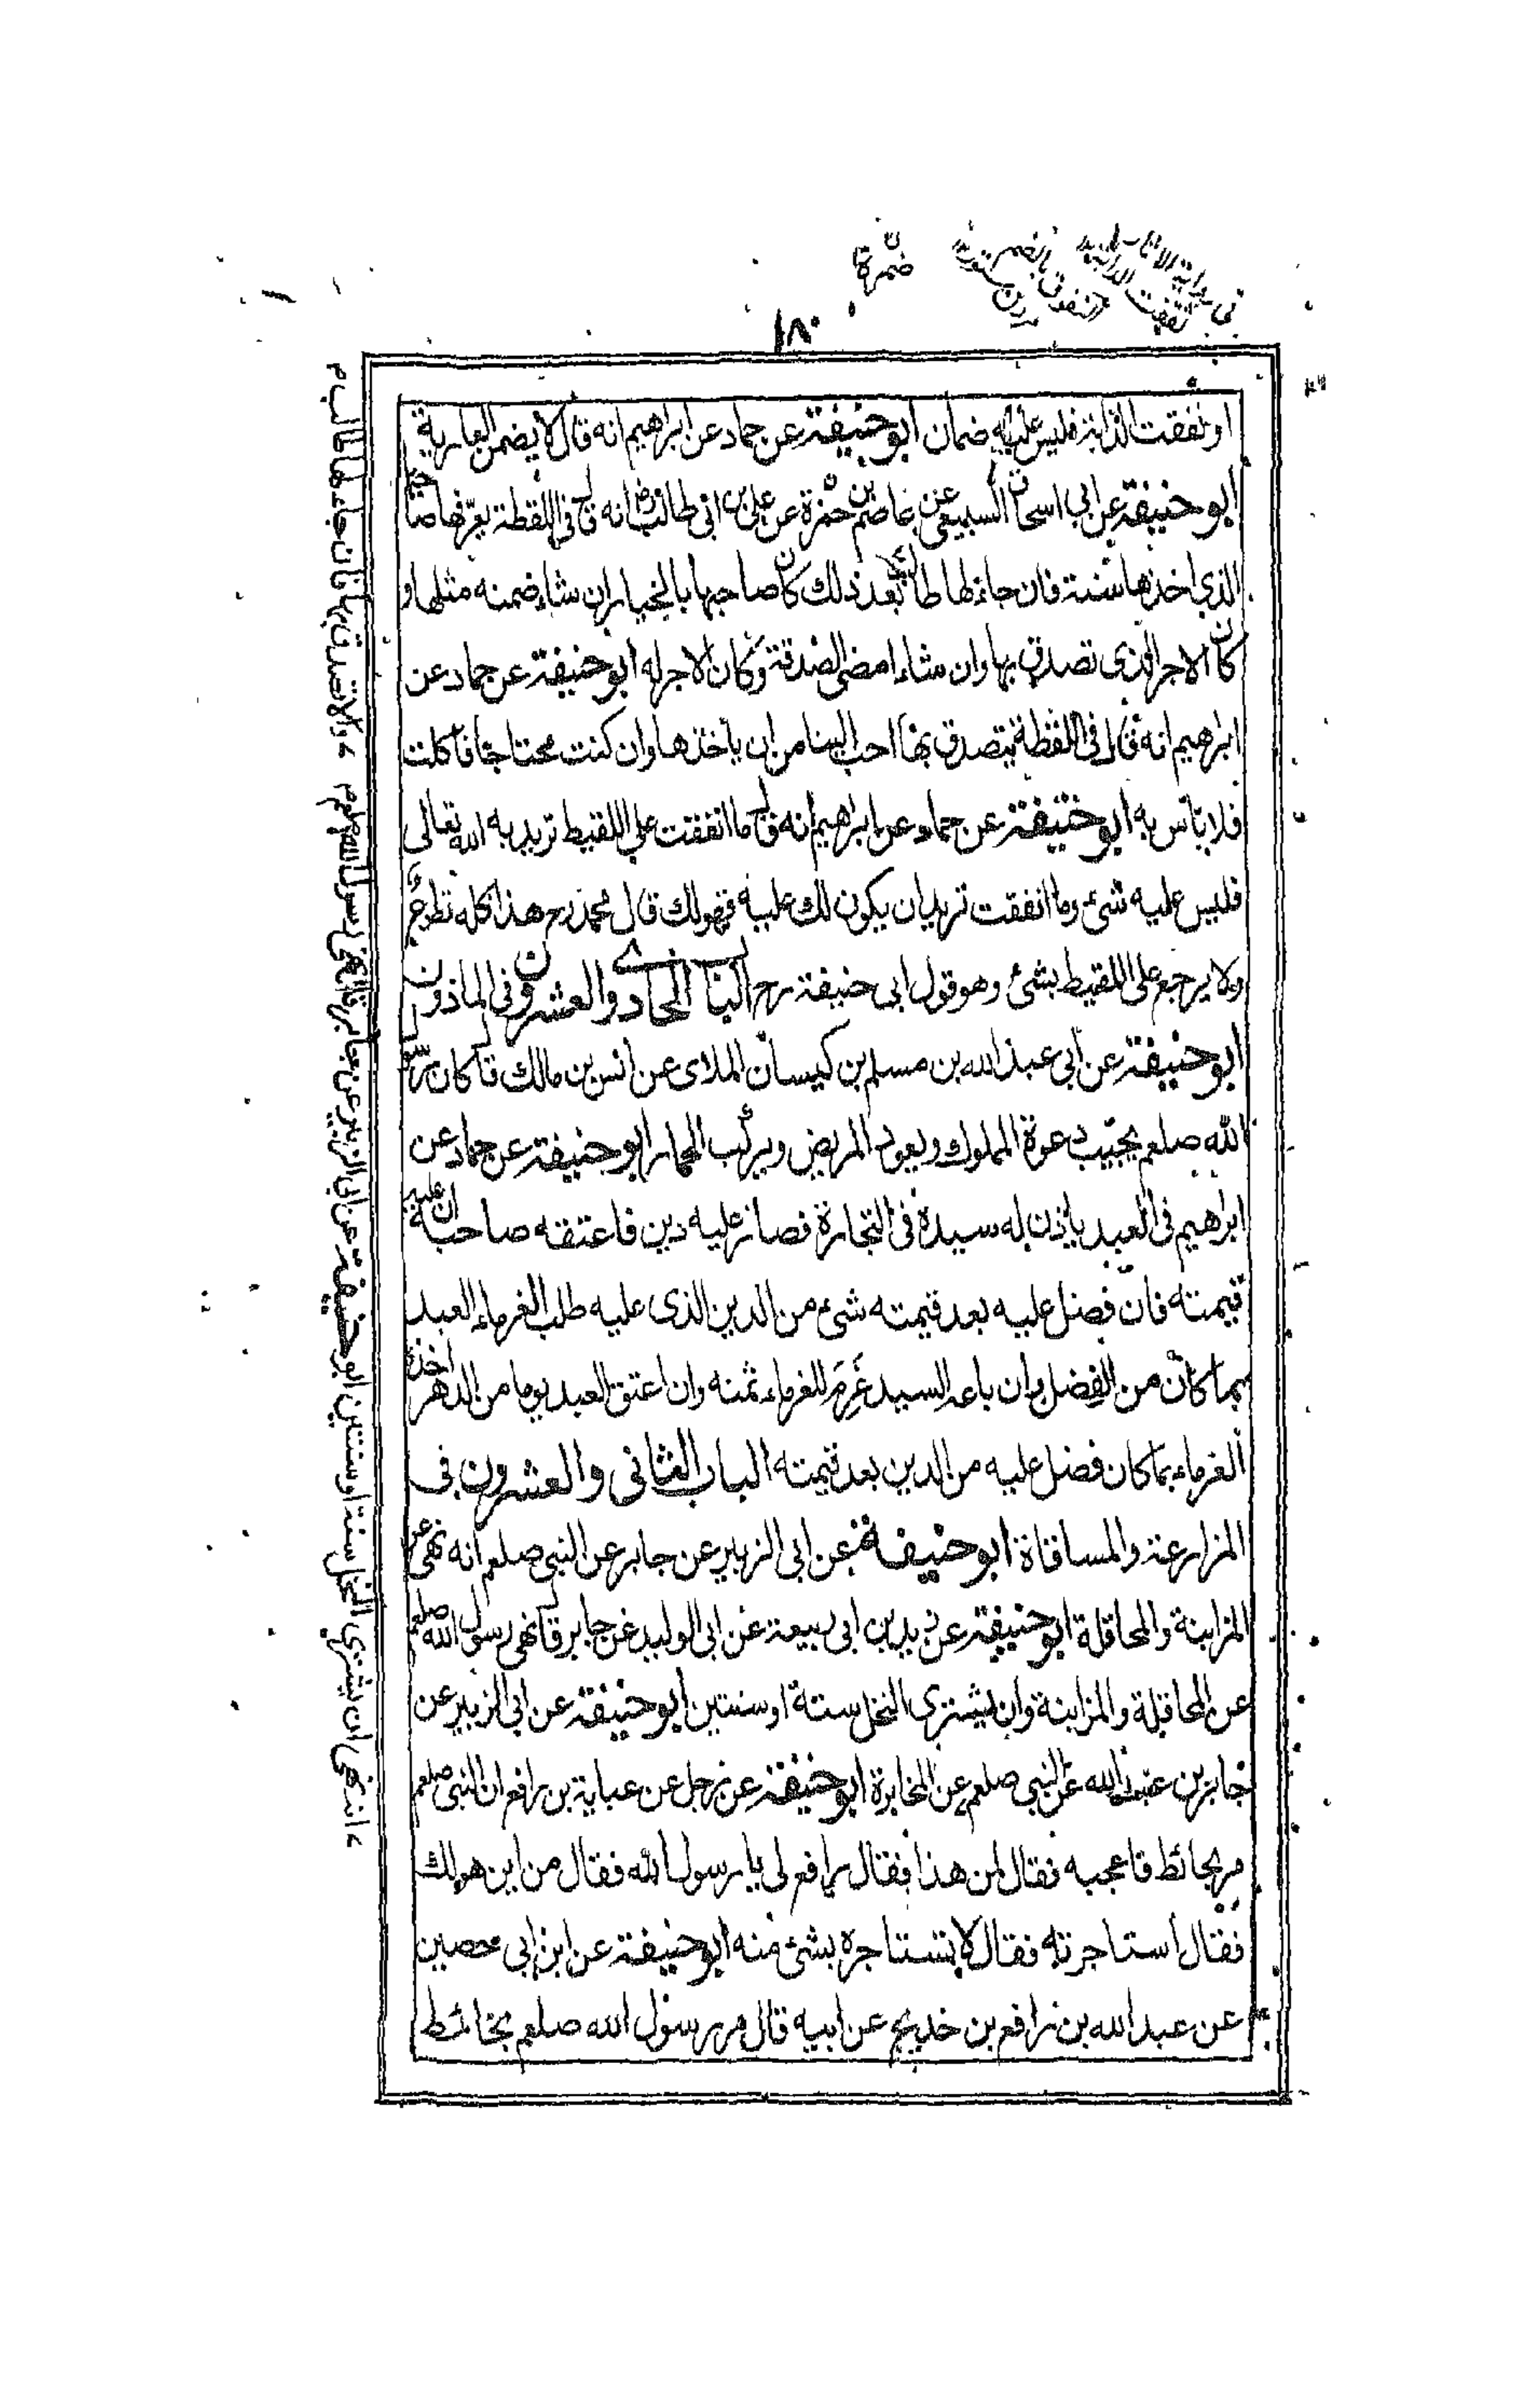 ضمرة
١٨٠
او نفقت الدابة فليس عليه ضمان ابو حنيفة عن حماد عن ابراهيم انه قال لا يضمن العارية
ابو حنيفة عن ابي اسحاق السبيعي عن عاصم بن حمزة عن علي بن ابي طالب رض انه قال في اللقطة يعرفها صاحبها
الذي اخذها سنة فان جاء لها طالب بعد ذلك كان صاحبها بالخيار ان شاء ضمنه مثلها و
كان الاجر الذي تصدق بها وان شاء امضى الصدقة وكان الاجر له ابو حنيفة عن حماد عن
ابرهيم انه قال في اللقطة يتصدق بها احب الينا من ان ياخذها وان كنت محتاجا فاكلت
فلا باس به ابو حنيفة عن حماد عن ابراهيم انه قال ما انفقت علي اللقيط تريد به الله تعالى
فليس عليه شئ وما انفقت تريد ان يكون لك عليه فهو لك قال محمد رح هذا كله تطوع
ولا يرجع على اللقيط بشئ وهو قول ابى حنيفة رح الباب الحادي والعشرون فى الماذون
ابو حنيفة عن ابي عبد الله بن مسلم بن كيسان الملائ عن انس بن مالك قال كان رسول
الله صلعم يجيب دعوة المملوك ويعود المريض ويركب الحمار ابو حنيفة عن حماد عن
ابراهيم فى العبد ياذن له سيدة فى التجارة فصار عليه دين فاعتقه صاحبه ان عليه
قيمته فان فضل عليه بعد قيمته شئ من الدين الذى عليه طلب الغرماء العبد
بما كان من الفضل وان باعه السيد غرم للغرماء ثمنه وان اعتق العبد يوما من الدهر اخذه
الغرماء بما كان فضل عليه من الدين بعد قيمته الباب الثانى والعشرون فى
المزارعة والمساقاة ابو حنيفة عن ابى الزبير عن جابر عن النبى صلعم انه نهى عن
المزابنة والمحاقلة ابو حنيفة عن زيد بن ابى ربيعة عن ابى الوليد عن جابر قال نهى رسول الله صلعم
عن المحاقلة والمزابنة وان يشترى النخل سنة او سنتين ابو حنيفة عن ابي الزبير عن
جابر بن عبد الله عن النبي صلعم عن المخابرة ابو حنيفة عن رجل عن عباية بن رافع ان النبى صلعم
مر بحائط فاعجبه فقال لمن هذا فقال رافع لى يا رسول الله فقال من اين هو لك
فقال استاجرته فقال لا تستاجره بشئ منه ابو حنيفة عن ابن ابي حصين
عن عبد الله بن رافع بن خديج عن ابيه قال مر رسول الله صلعم بحائط
ع والا تصدق بها فان جاء لها طالب م
ع انه نهى ان يشترى النخل سنة او سنتين ابو حنيفة عن ابي الزبير عن جابر قال نهى رسول الله صلعم